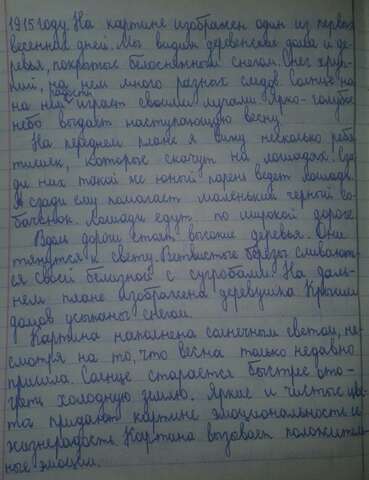 1915 году. На картине изображен один из первых
весенних дней. Мы видим деревенские дома и де-
ревья, покрытые белоснежным снегом. Снег хруп-
кий, на нем много разных следов. Солнце на
на ней играет своими лучами. Ярко-голубое
небо выдает наступающую весну.
На переднем плане я вижу несколько ребя
тишек, которые скачут на лошадях. Сза-
ди них такой же юный парень ведет лошадь.
А сзади ему помогает маленький черный со-
баченок. Лошади едут по широкой дороге
Вдоль дороги стоят высокие деревья. Они
тянутся к свету. Ветвистые березы сливают-
ся своей белизной с сугробами. На даль-
нем плане изображена деревушка. Крыши
домов устланы снегом.
Картина наполнена солнечным светом, не-
смотря на то, что весна только недавно
пришла. Солнце старается быстрее ото-
греть холодную землю. Яркие и чистые цве-
та придают картине эмоциональность и
жизнерадость. Картина вызывает положитель-
ные эмоции.